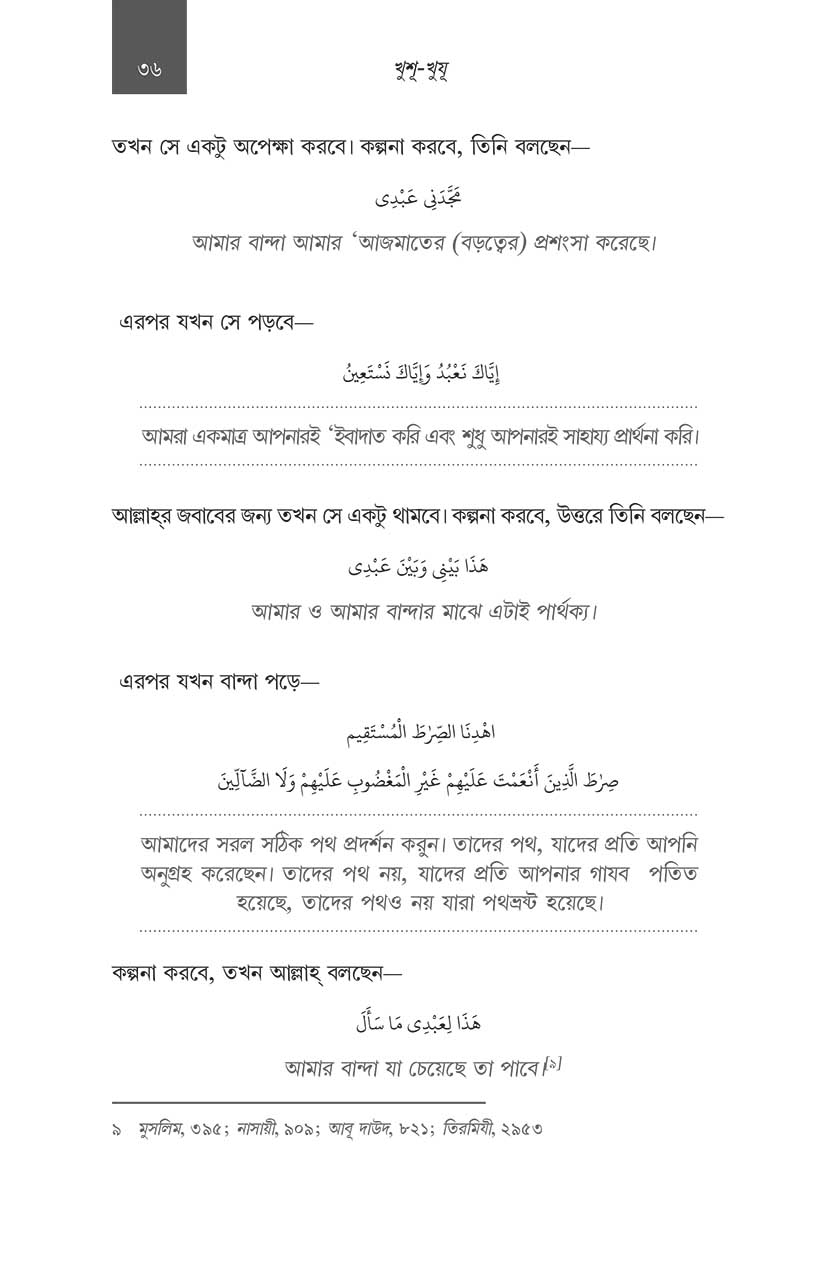 ৩৬
খুশূ-খুযূ
তখন সে একটু অপেক্ষা করবে। কল্পনা করবে, তিনি বলছেন—
مَجَّدَنِي عَبْدِى
আমার বান্দা আমার ‘আজমাতের (বড়ত্বের) প্রশংসা করেছে।
এরপর যখন সে পড়বে—
إِيَّاكَ نَعْبُدُ وَإِيَّاكَ نَسْتَعِينُ
আমরা একমাত্র আপনারই ‘ইবাদাত করি এবং শুধু আপনারই সাহায্য প্রার্থনা করি।
আল্লাহ্‌র জবাবের জন্য তখন সে একটু থামবে। কল্পনা করবে, উত্তরে তিনি বলছেন—
هَذَا بَيْنِى وَبَيْنَ عَبْدِى
আমার ও আমার বান্দার মাঝে এটাই পার্থক্য।
এরপর যখন বান্দা পড়ে—
اهْدِنَا الصِّرٰطَ الْمُسْتَقِيم
صِرٰطَ الَّذِينَ أَنْعَمْتَ عَلَيْهِمْ غَيْرِ الْمَغْضُوبِ عَلَيْهِمْ وَلَا الضَّآلِّينَ
আমাদের সরল সঠিক পথ প্রদর্শন করুন। তাদের পথ, যাদের প্রতি আপনি
অনুগ্রহ করেছেন। তাদের পথ নয়, যাদের প্রতি আপনার গাযব পতিত
হয়েছে, তাদের পথও নয় যারা পথভ্রষ্ট হয়েছে।
কল্পনা করবে, তখন আল্লাহ্ বলছেন—
هَذَا لِعَبْدِى مَا سَأَلَ
আমার বান্দা যা চেয়েছে তা পাবে।[৯]
৯ মুসলিম, ৩৯৫; নাসায়ী, ৯০৯; আবূ দাউদ, ৮২১; তিরমিযী, ২৯৫৩